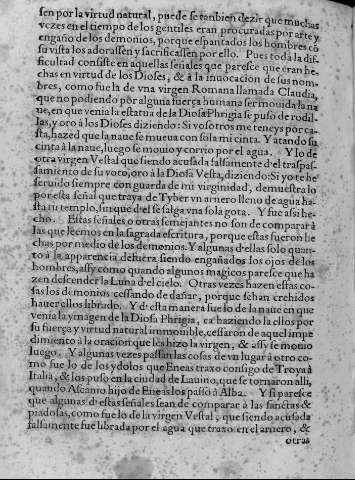 sen por la virtud natural, puede se tanbien dezir que muchas
vezes en el tiempo de los gentiles eran procuradas por arte y
engaño de los demonios, porque espantados los hombres cō
su vista los adorassen y sacrificassen por ello. Pues toda la dif-
ficultad consiste en aquellas señales que paresce que eran he-
chas en virtud de los Dioses, & à la inuocacion de sus nom-
bres, como fue la de vna virgen Romana llamada Claudia,
que no podiendo por alguna fuerça humana ser mouida la na
ue, en que venia la estatua de la Diosa Phrigia se puso de rodil-
las, y oro à los Dioses diziendo: Si vosotros me teneys por ca-
sta, hazed que la naue se mueua con sola mi cinta. Y atando su
cinta à la naue, luego se mouio y corrio por el agua. Y lo de
otra virgen Vestal que siendo acusada falsamente d'el traspas-
samiento de su voto, oro à la Diosa Vesta, diziendo: Si yo te he
seruido siempre con guarda de mi virginidad, demuestra lo
por esta señal que trayga de Tyber vn arnero lleno de agua ha-
sta tu templo, sin que d'el se salga vna sola gota. Y fue assi he-
cho. Estas señales o otras semejantes no son de comparar à
las que leemos en la sagrada escritura, porque estas fueron he
chas por medio de los demonios. Y algunas d'ellas solo quan-
to à la apparencia defuera siendo engañados los ojos de los
hombres, assy como quando algunos magicos paresce que ha
zen descender la Luna d'el cielo. Otras vezes hazen estas co-
sas los demonios cessando de dañar, porque sean crehidos
hauer ellos librado. Y d'esta manera fue lo de la naue en que
venia la ymagen de la Diosa Phrigia, ca haziendo la ellos por
su fuerça y virtud natural immouible, cessaron de aquel impe
dimiento à la oracion que les hizo la virgen, & assy se mouio
luego. Y algunas vezes passan las cosas de vn lugar à otro co-
mo fue lo de los ydolos que Eneas traxo consigo de Troya à
Italia, & los puso en la ciudad de Lauino, que se tornaron alli,
quando Ascanio hijo de Eneas los passo à Alba. Y si paresce
que algunas d'estas señales sean de comparar à las sanctas &
piadosas, como fue lo de la virgen Vestal, que siendo acusada
falsamente fue librada por el agua que traxo en el arnero, &
otras